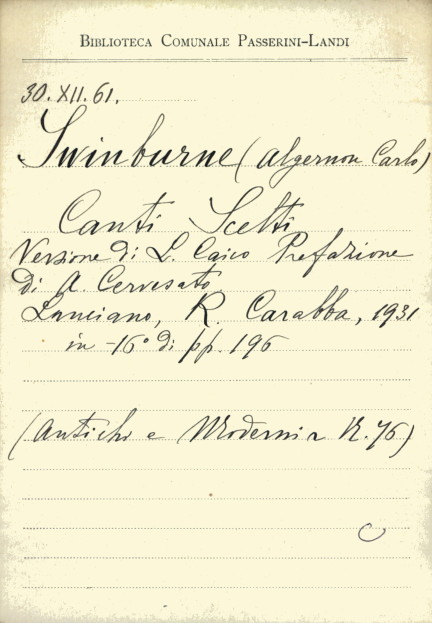 BIBLIOTECA COMUNALE PASSERINI-LANDI
30.XII.61.
Swinburne (Algernon Carlo)
Canti Scelti
Versione di L. Caico Prefazione
di A. Cervesato
Lanciano, R. Carabba, 1931
in -16° di pp. 196
(Antichi e Moderni N. 76)
C